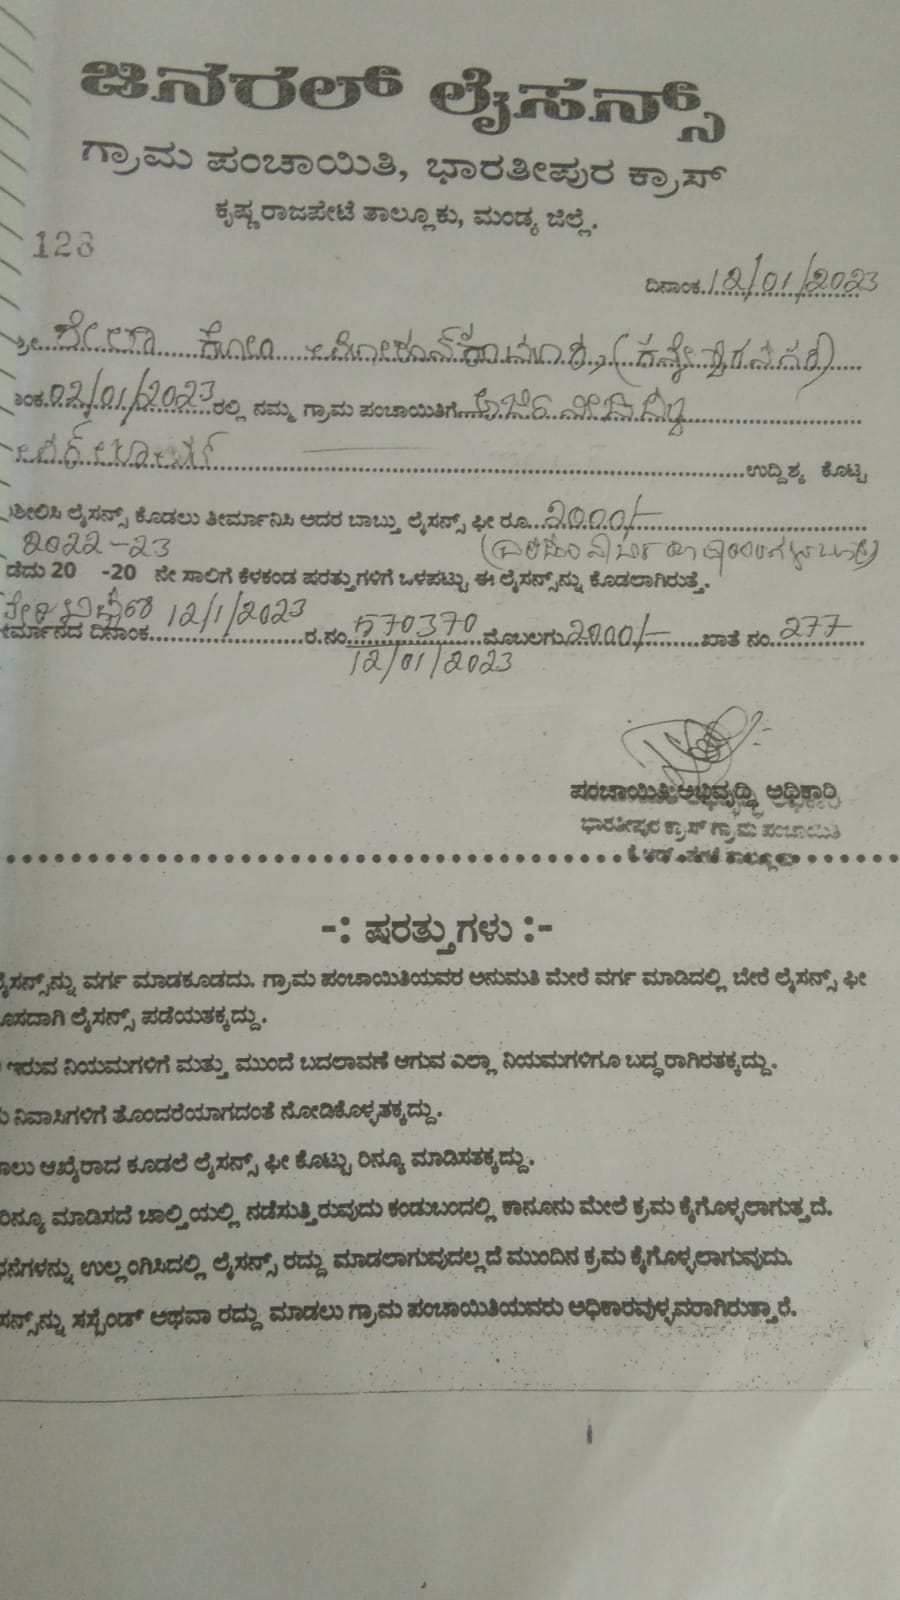 ಜನರಲ್ ಲೈಸನ್ಸ್
ಗ್ರಾಮ ಪಂಚಾಯಿತಿ, ಭಾರತೀಪುರ ಕ್ರಾಸ್
ಕೃಷ್ಣರಾಜಪೇಟೆ ತಾಲ್ಲೂಕು, ಮಂಡ್ಯ ಜಿಲ್ಲೆ.
128
ದಿನಾಂಕ 12/01/2023
ರೇಖಾ ಕೋಂ
02/01/2023 ರಲ್ಲಿ ನಮ್ಮ ಗ್ರಾಮ ಪಂಚಾಯಿತಿಗೆ
ಉದ್ದಿಶ್ಯ ಕೊಟ್ಟ
ಲೈಸನ್ಸ್ ಕೊಡಲು ತೀರ್ಮಾನಿಸಿ ಅದರ ಬಾಬ್ತು ಲೈಸನ್ಸ್ ಫೀ ರೂ 2000/-
2022-23
ಡೆದು 20 -20 ನೇ ಸಾಲಿಗೆ ಕೆಳಕಂಡ ಷರತ್ತುಗಳಿಗೆ ಒಳಪಟ್ಟು ಈ ಲೈಸನ್ಸ್‌ನ್ನು ಕೊಡಲಾಗಿರುತ್ತೆ.
ರ್ಮಾನದ ದಿನಾಂಕ 12/1/2023 ರ.ನಂ. 570370 ಮೊಬಲಗು 2000/- ಖಾತೆ ನಂ. 277
12/01/2023
ಪಂಚಾಯಿತಿ ಅಭಿವೃದ್ಧಿ ಅಧಿಕಾರಿ
ಭಾರತೀಪುರ ಕ್ರಾಸ್ ಗ್ರಾಮ ಪಂಚಾಯಿತಿ
-: ಷರತ್ತುಗಳು :-
ಲೈಸನ್ಸ್‌ನ್ನು ವರ್ಗ ಮಾಡಕೂಡದು. ಗ್ರಾಮ ಪಂಚಾಯಿತಿಯವರ ಅನುಮತಿ ಮೇರೆ ವರ್ಗ ಮಾಡಿದಲ್ಲಿ ಬೇರೆ ಲೈಸನ್ಸ್ ಫೀ
ಸದಾಗಿ ಲೈಸನ್ಸ್ ಪಡೆಯತಕ್ಕದ್ದು.
ಇರುವ ನಿಯಮಗಳಿಗೆ ಮತ್ತು ಮುಂದೆ ಬದಲಾವಣೆ ಆಗುವ ಎಲ್ಲಾ ನಿಯಮಗಳಿಗೂ ಬದ್ಧರಾಗಿರತಕ್ಕದ್ದು.
ನಿವಾಸಿಗಳಿಗೆ ತೊಂದರೆಯಾಗದಂತೆ ನೋಡಿಕೊಳ್ಳತಕ್ಕದ್ದು.
ಾಲು ಆಖೈರಾದ ಕೂಡಲೆ ಲೈಸನ್ಸ್ ಫೀ ಕೊಟ್ಟು ರಿನ್ಯೂ ಮಾಡಿಸತಕ್ಕದ್ದು.
ರಿನ್ಯೂ ಮಾಡಿಸದೆ ಚಾಲ್ತಿಯಲ್ಲಿ ನಡೆಸುತ್ತಿರುವುದು ಕಂಡುಬಂದಲ್ಲಿ ಕಾನೂನು ಮೇಲೆ ಕ್ರಮ ಕೈಗೊಳ್ಳಲಾಗುತ್ತದೆ.
ಧನೆಗಳನ್ನು ಉಲ್ಲಂಗಿಸಿದಲ್ಲಿ ಲೈಸನ್ಸ್ ರದ್ದು ಮಾಡಲಾಗುವುದಲ್ಲದೆ ಮುಂದಿನ ಕ್ರಮ ಕೈಗೊಳ್ಳಲಾಗುವುದು.
ಸನ್ಸ್‌ನ್ನು ಸಸ್ಪೆಂಡ್ ಅಥವಾ ರದ್ದು ಮಾಡಲು ಗ್ರಾಮ ಪಂಚಾಯಿತಿಯವರು ಅಧಿಕಾರವುಳ್ಳವರಾಗಿರುತ್ತಾರೆ.